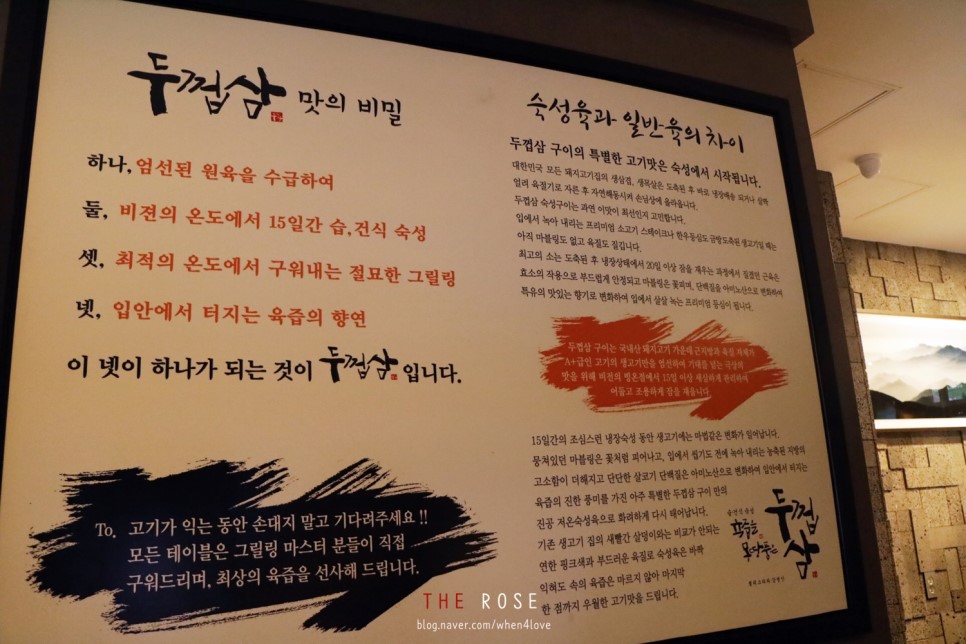 두껍삼 맛의 비밀
하나, 엄선된 원육을 수급하여
둘, 비젼의 온도에서 15일간 습,건식 숙성
셋, 최적의 온도에서 구워내는 절묘한 그릴링
넷, 입안에서 터지는 육즙의 향연
이 넷이 하나가 되는 것이 두껍삼 입니다.
To. 고기가 익는 동안 손대지 말고 기다려주세요 !!
모든 테이블은 그릴링 마스터 분들이 직접
구워드리며, 최상의 육즙을 선사해 드립니다.
숙성육과 일반육의 차이
두껍삼 구이의 특별한 고기맛은 숙성에서 시작됩니다.
대한민국 모든 돼지고기집의 생삼겹, 생목살은 도축된 후 바로 냉장배송 되거나 살짝
얼려 육절기로 자른 후 자연해동시켜 손님상에 올라옵니다.
두껍삼 숙성구이는 과연 이맛이 최선인지 고민합니다.
입에서 녹아 내리는 프리미엄 소고기 스테이크나 한우등심도 금방도축된 생고기일 때는
아직 마블링도 없고 육질도 질깁니다.
최고의 소는 도축된 후 냉장상태에서 20일 이상 잠을 재우는 과정에서 질겼던 근육은
효소의 작용으로 부드럽게 안정되고 마블링은 꽃피며, 단백질을 아미노산으로 변화하여
특유의 맛있는 향기로 변화하여 입에서 살살 녹는 프리미엄 등심이 됩니다.
두껍삼 구이는 국내산 돼지고기 가운데 근지방과 육질 자체가
A+급인 고기의 생고기만을 엄선하여 기대를 넘는 극상의
맛을 위해 비젼의 빙온점에서 15일 이상 세심하게 관리하여
어둡고 조용하게 잠을 재웁니다.
15일간의 조심스런 냉장숙성 동안 생고기에는 마법같은 변화가 일어납니다.
뭉쳐있던 마블링은 꽃처럼 피어나고, 입에서 씹기도 전에 녹아 내리는 농축된 지방의
고소함이 더해지고 단단한 살코기 단백질은 아미노산으로 변화하여 입안에서 터지는
육즙의 진한 풍미를 가진 아주 특별한 두껍삼 구이 만의
진공 저온숙성육으로 화려하게 다시 태어납니다.
기존 생고기 집의 새빨간 살덩이와는 비교가 안되는
연한 핑크색과 부드러운 육질로 숙성육은 바짝
익혀도 속의 육즙은 마르지 않아 마지막
한 점까지 우월한 고기맛을 드립니다.
두껍삼
THE ROSE
blog.naver.com/when4love